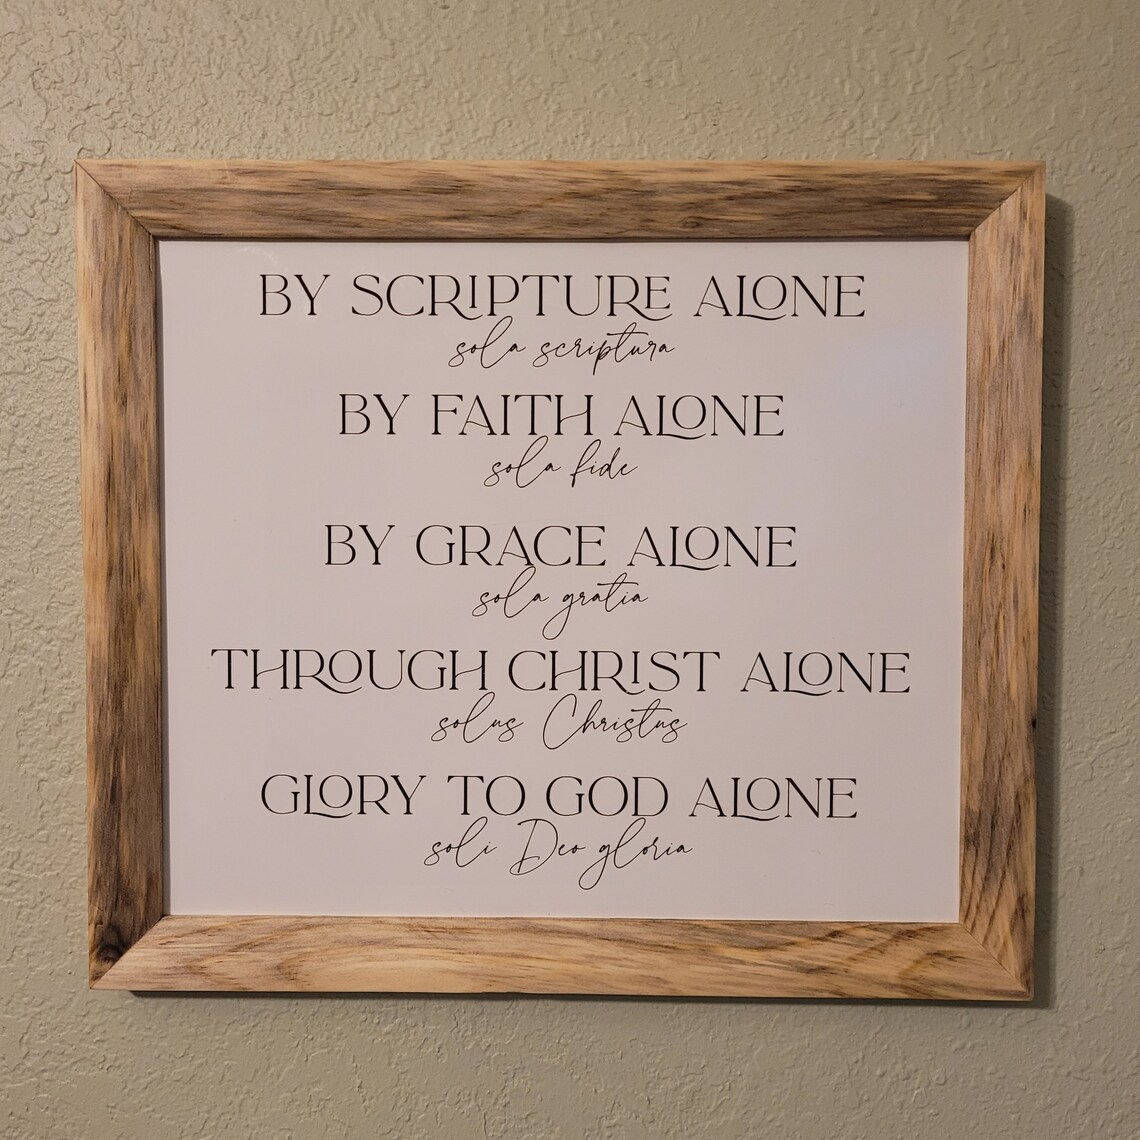 BY SCRIPTURE ALONE
sola scriptura
BY FAITH ALONE
sola fide
BY GRACE ALONE
sola gratia
THROUGH CHRIST ALONE
solus Christus
GLORY TO GOD ALONE
soli Deo gloria